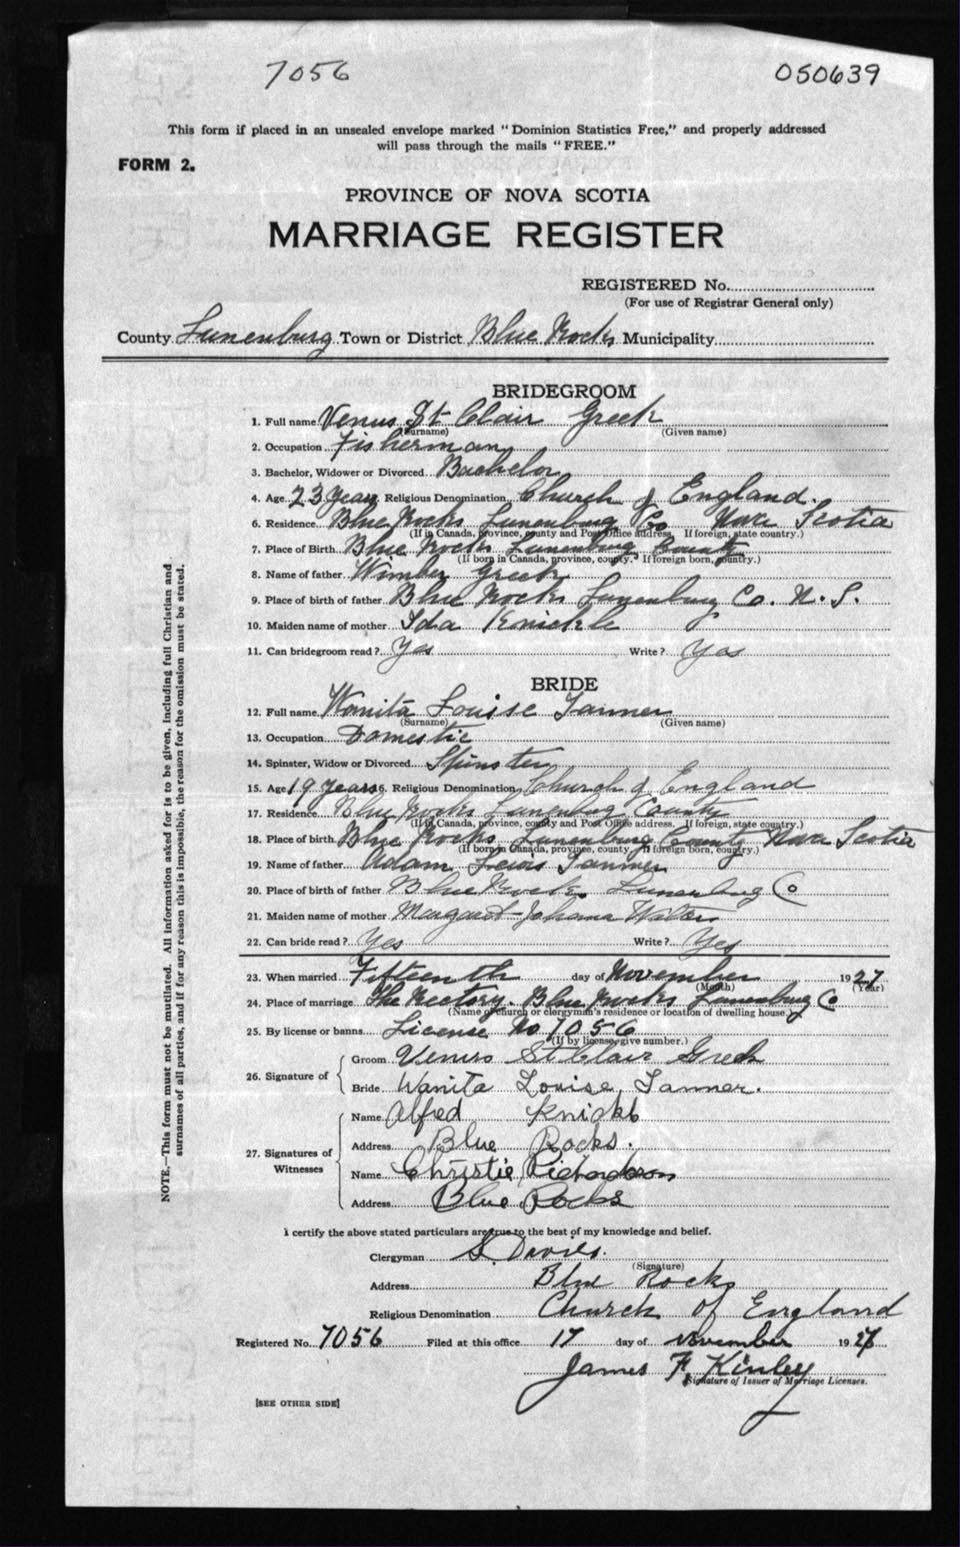 7056 050639
This form if placed in an unsealed envelope marked "Dominion Statistics Free," and properly addressed
will pass through the mails "FREE."
FORM 2.
PROVINCE OF NOVA SCOTIA
MARRIAGE REGISTER
REGISTERED No.
(For use of Registrar General only)
County Lunenburg Town or District Blue Rocks Municipality
BRIDEGROOM
1. Full name Venus St Clair Greek
(Surname) (Given name)
2. Occupation Fisherman
3. Bachelor, Widower or Divorced Bachelor
4. Age 23 Years Religious Denomination Church of England.
6. Residence Blue Rocks Lunenburg Co Nova Scotia
(If in Canada, province, county and Post Office address. If foreign, state country.)
7. Place of Birth Blue Rocks Lunenburg County
(If born in Canada, province, county. If foreign born, country.)
8. Name of father Greek
9. Place of birth of father Blue Rocks Lunenburg Co. N. S.
10. Maiden name of mother Ida Knickle
11. Can bridegroom read? Yes Write? Yes
BRIDE
12. Full name Wanita Louise Tanner
(Surname) (Given name)
13. Occupation Domestic
14. Spinster, Widow or Divorced Spinster
15. Age 19 years 16. Religious Denomination Church of England
17. Residence Blue Rocks Lunenburg County
(If in Canada, province, county and Post Office address. If foreign, state country.)
18. Place of birth Blue Rocks Lunenburg County Nova Scotia
(If born in Canada, province, county. If foreign born, country.)
19. Name of father Adam Lewis Tanner
20. Place of birth of father Blue Rocks Lunenburg Co
21. Maiden name of mother Margaret Johanna
22. Can bride read? Yes Write? Yes
23. When married Fifteenth day of November 1927
(Month) (Year)
24. Place of marriage The Rectory. Blue Rocks Lunenburg Co
(Name of church or clergyman's residence or location of dwelling house.)
25. By license or banns License No 7056
(If by license, give number.)
26. Signature of
Groom Venus St Clair Greek
Bride Wanita Louise Tanner.
27. Signatures of Witnesses
Name Alfred
Address Blue Rocks.
Name Christie Richardson
Address Blue Rocks
I certify the above stated particulars are true to the best of my knowledge and belief.
Clergyman S. Davies.
(Signature)
Address Blue Rocks
Religious Denomination Church of England
Registered No. 7056 Filed at this office 17 day of November 1927
James F. Kinley
Signature of Issuer of Marriage Licenses.
[SEE OTHER SIDE]
NOTE.—This form must not be mutilated. All information asked for is to be given, including full Christian and
surnames of all parties, and if for any reason this is impossible, the reason for the omission must be stated.